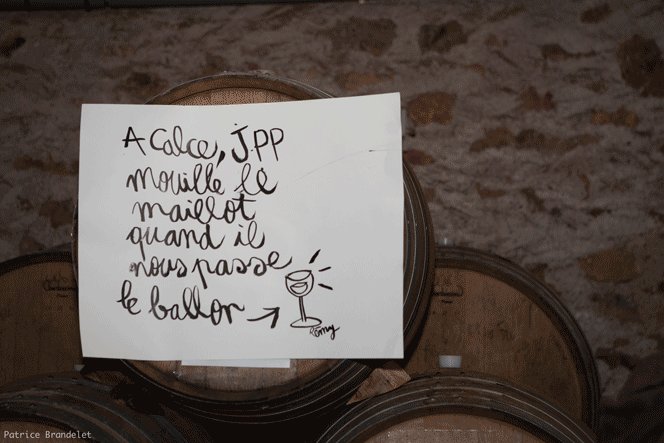 A Calce, J.PP
mouille le
maillot
quand il
nous passe
le ballon →
Romy
Patrice Brandelet